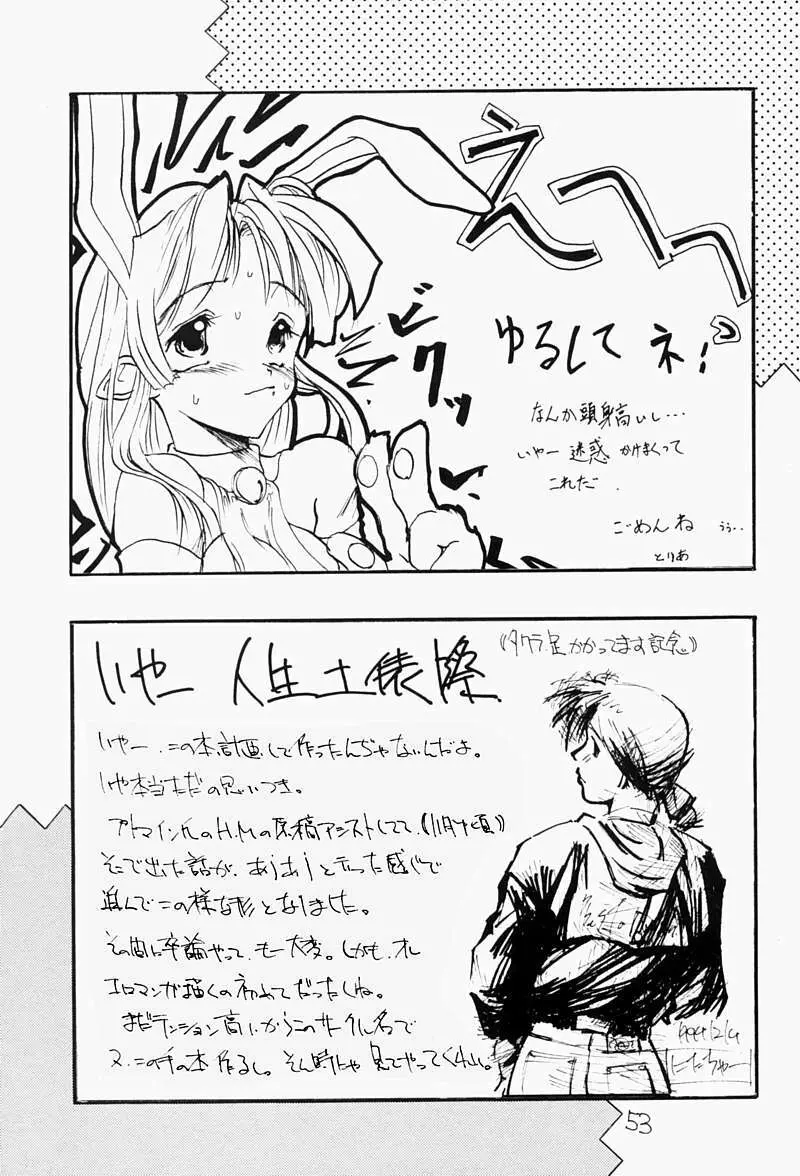 えへへっ
ゆるしてネ!
なんか頭身高いし…
いやー 迷惑 かけまくって
これだ.
ごめんね うぅ..
とりあ
ビクッ
いやー 人生土俵際
いやー.この本計画して作ったんぢゃないんだよ。
いや本当ただの思いつき。
H.M.の原稿アシストしてて、(11月頃)
そこで出た話が、あうあうと言った感じで
進んでこの様な形となりました。
その間に卒論やって、もー大変。しかも、オレ
エロマンガ描くの初めてだったしね。
まだテンション高いからこのサークル名で
又、この手の本作るし。そん時にゃ見てやってくれい。
にたちゃー
53